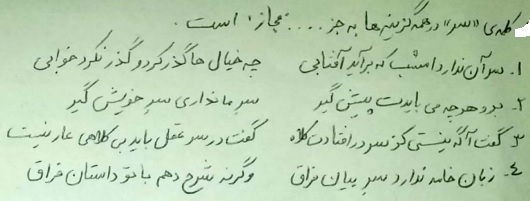 کلمه‌ی «سر» در همه گزینه‌ها به جز .... «مجاز» است.
۱. سر آن ندارد امشب که برآید آفتابی چه خیال‌ها گذر کرد و گذر نکرد خوابی
۲. برو هرچه می بایدت پیش گیر سر ما نداری سر خویش گیر
۳. گفت آگه نیستی کز سر در افتادت کلاه گفت در سر عقل باید بی کلاهی عار نیست
۴. زبان خامه ندارد سر بیان فراق وگرنه شرح دهم با تو داستان فراق